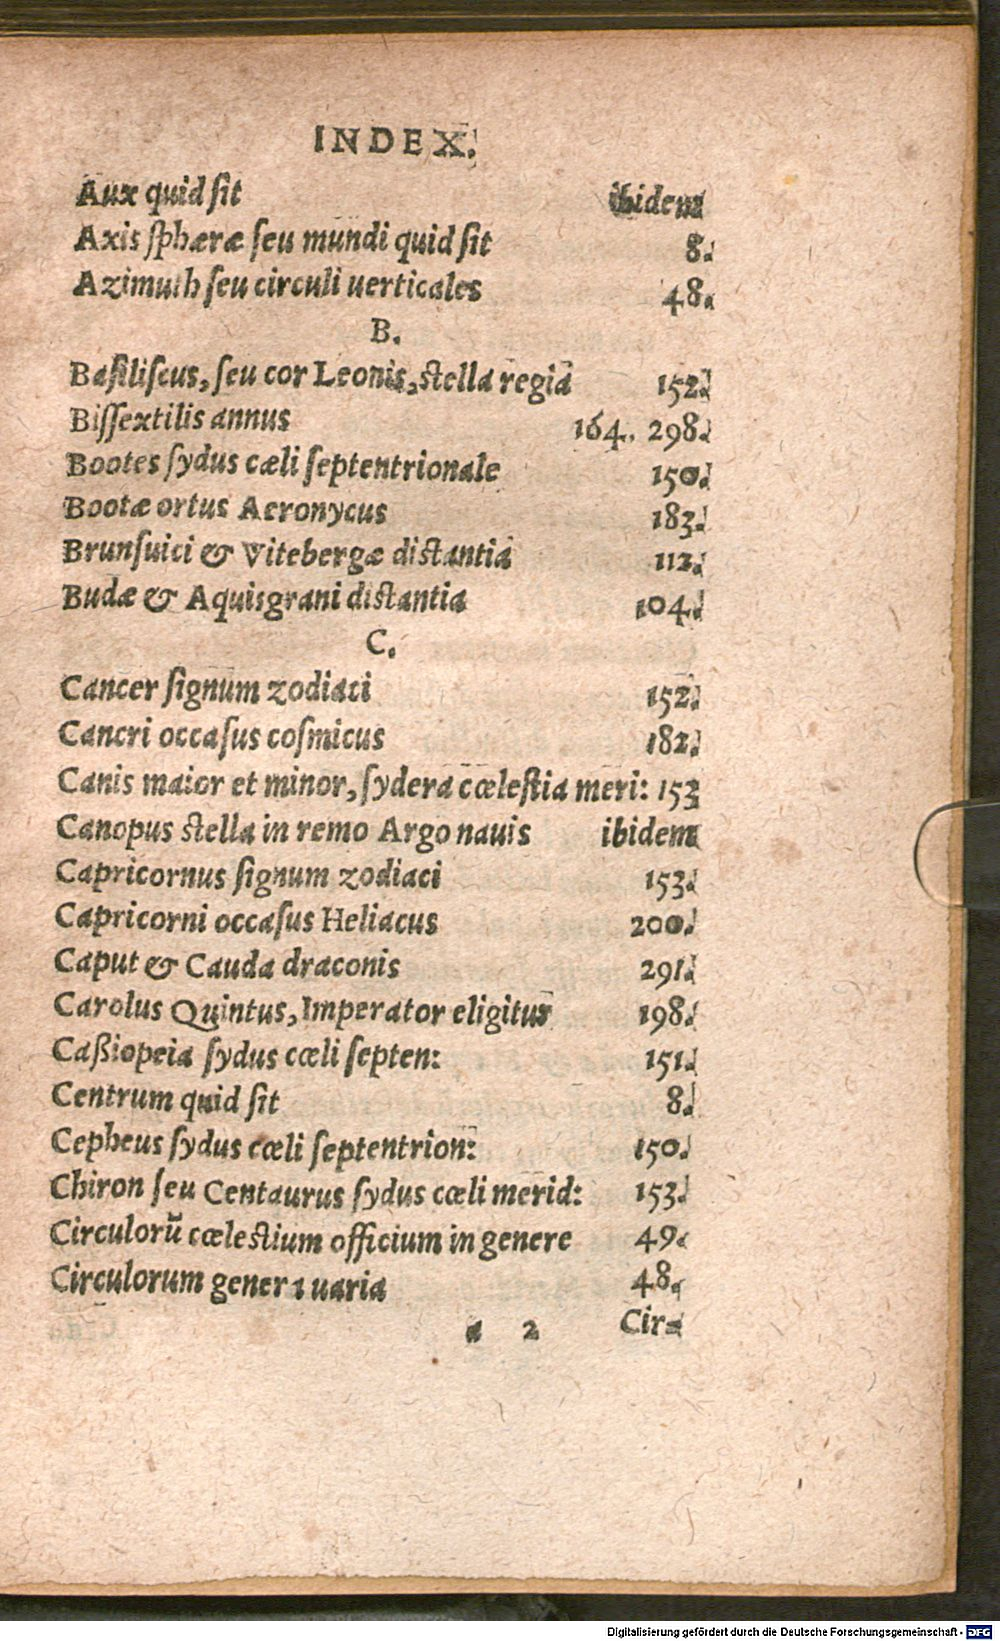 INDEX.
Aux quid ſit ibidem
Axis ſphæræ ſeu mundi quid ſit 8.
Azimuth ſeu circuli uerticales 48.
B.
Baſiliſcus, ſeu cor Leonis, stella regia 152.
Biſſextilis annus 164. 298.
Bootes ſydus cæli ſeptentrionale 150.
Bootæ ortus Acronycus 183.
Brunſuici & Vitebergæ distantia 112.
Budæ & Aquisgrani distantia 104.
C.
Cancer ſignum zodiaci 152.
Cancri occaſus coſmicus 182.
Canis maior et minor, ſydera cœleſtia meri: 153
Canopus stella in remo Argo nauis ibidem
Capricornus ſignum zodiaci 153.
Capricorni occaſus Heliacus 200.
Caput & Cauda draconis 291.
Carolus Quintus, Imperator eligitur 198.
Caßiopeia ſydus cœli ſepten: 151.
Centrum quid ſit 8.
Cepheus ſydus cœli ſeptentrion: 150.
Chiron ſeu Centaurus ſydus cœli merid: 153.
Circulorū cœlestium officium in genere 49.
Circulorum genera uaria 48.
a 2 Cir=
Digitalisierung gefördert durch die Deutsche Forschungsgemeinschaft - DFG